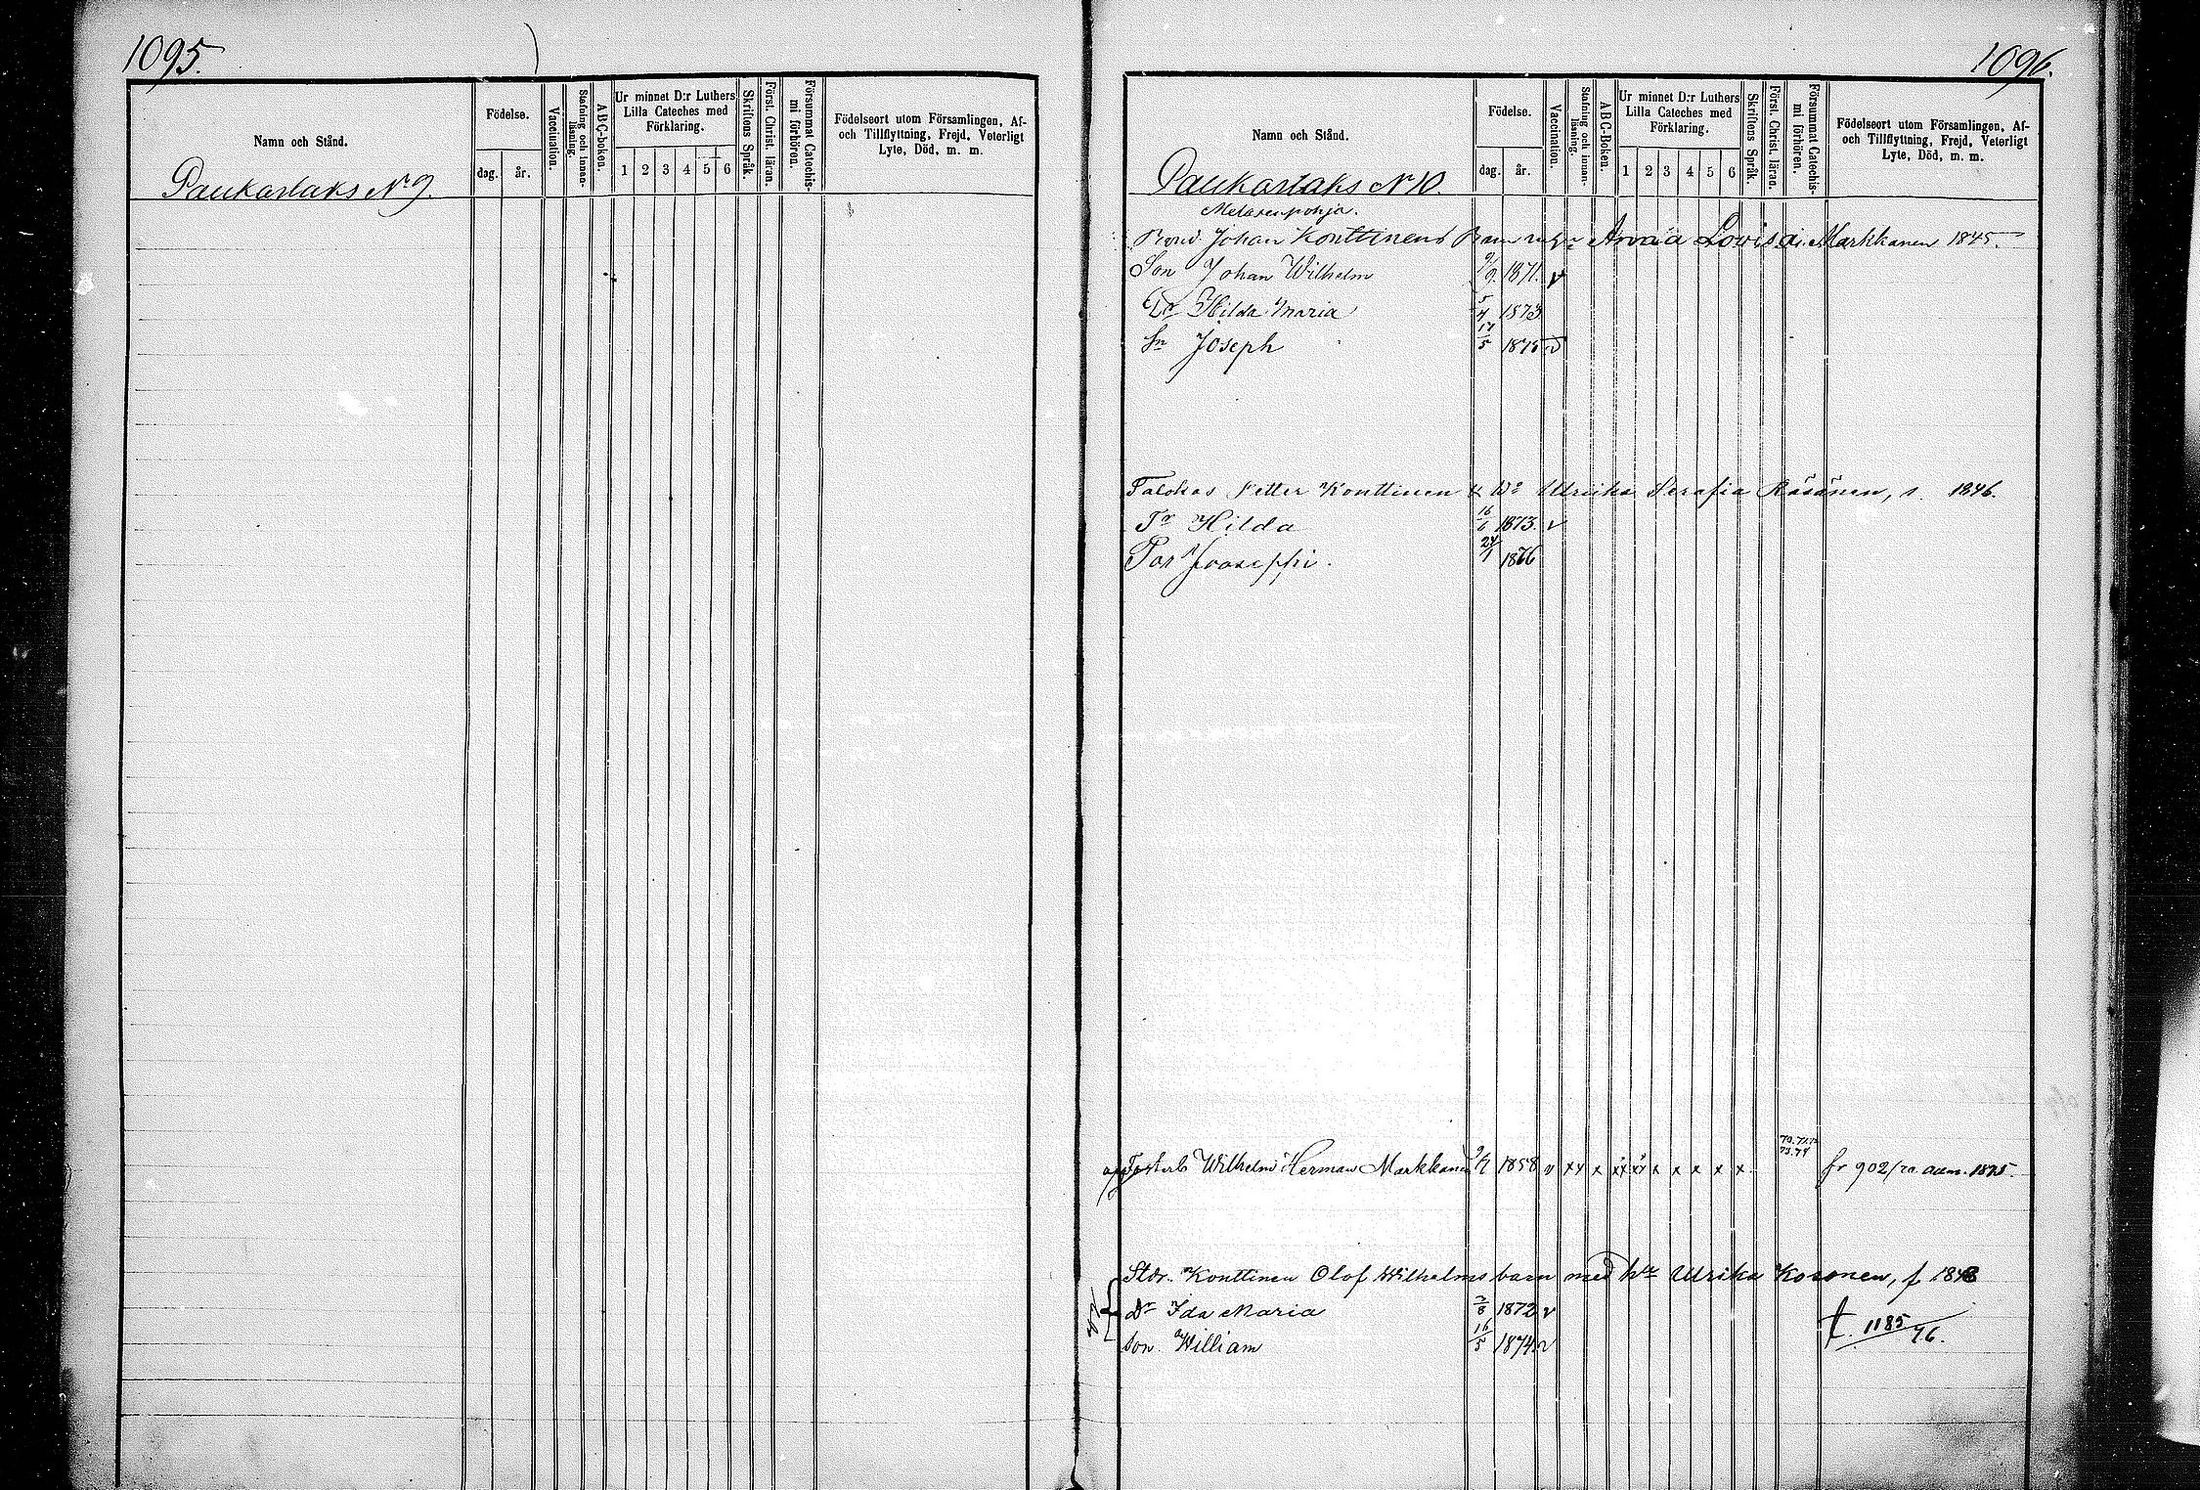 1095.
Namn och Stånd.
Födelse.
dag.
år.
Vaccination.
Stafning och innan-
läsning.
A B C-boken.
Ur minnet D:r Luthers
Lilla Cateches med
Förklaring.
1 2 3 4 5 6
Skriftens Språk.
Först. Christ. läran.
Försummat Catechis-
mi förhören.
Födelseort utom Församlingen, Af-
och Tillflyttning, Frejd, Veterligt
Lyte, Död, m. m.
Paukarlaks No 9.
1096.
Namn och Stånd.
Födelse.
dag.
år.
Vaccination.
Stafning och innan-
läsning.
A B C-boken.
Ur minnet D:r Luthers
Lilla Cateches med
Förklaring.
1 2 3 4 5 6
Skriftens Språk.
Först. Christ. läran.
Försummat Catechis-
mi förhören.
Födelseort utom Församlingen, Af-
och Tillflyttning, Frejd, Veterligt
Lyte, Död, m. m.
Paukarlaks No 10.
Metäsenpohja.
Bond. Johan Konttinens Barn Lovisa Markkanen 1845.
Son Johan Wilhelm 9/9. 1871. v
Dr Hilda Maria 5/4 1873
Sn Joseph 17/5 1875 v
Talokas Petter Konttinen Ulriika Serafia Räsänen, s. 1846.
Tr Hilda 16/6 1873. v
Poi Jooseppi. 24/1 1876
Wilhelm Herman Markkanen 1858 v xx x xx xx x x x x x 73.74 fr 902/ 1875.
Stdr. Konttinen Olof Wilhelms barn med hu Ulrika Kosonen, f 1848
Dr Ida Maria 2/8 1872 v
Son William 16/5 1874. v
t. 1185/76.